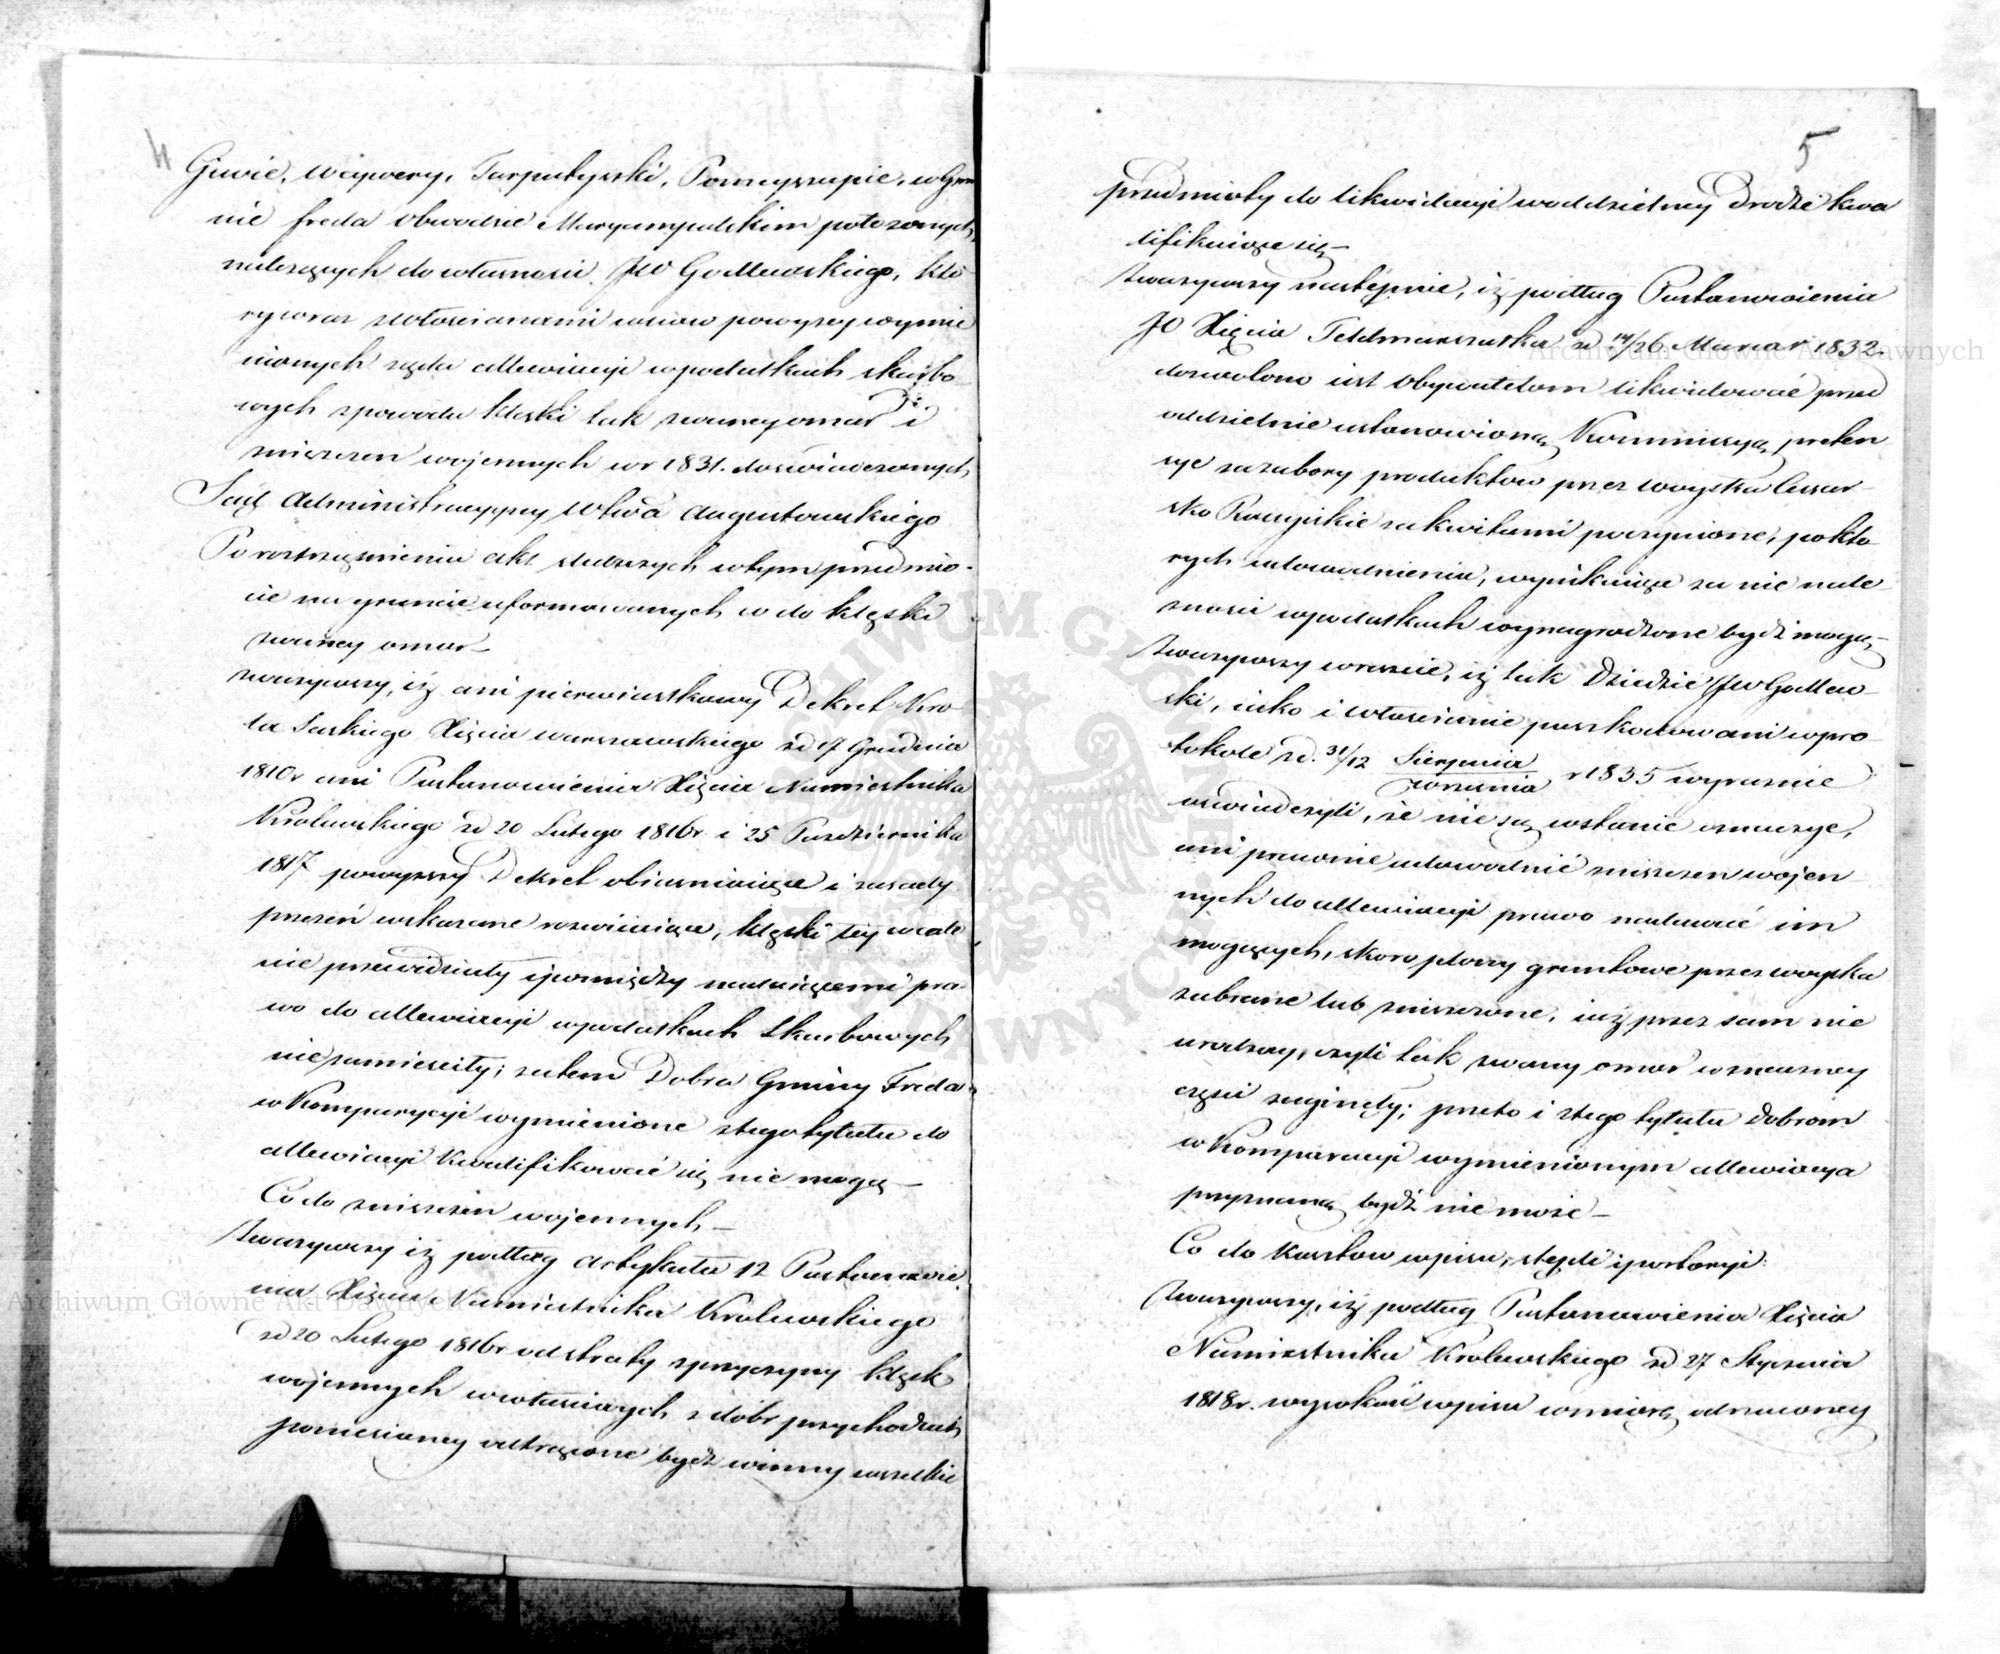 4
Giwie, Wiywery, Turputyszki, Pomeyszupie, w Gmi
nie freda Obwodzie Maryampolskim położonych,
należących do własności JW Godlewskiego, któ
ry wraz z włościanami wsiów powyżey wymie
nionych żąda allewiacyi w podatkach skarbo
wych z powodu klęski tak zwaney omar i
zniszczeń wojennych w r 1831. doświadczonych
Sąd Administracyjny Wtwa Augustowskiego
Po roztrząśnieniu akt służących w tym przedmio-
cie na gruncie uformowanych co do klęski
zwaney omar—
zważywszy, iż ani pierwiastkowy Dekret Kró
la Saskiego Xięcia warszawskiego z d 17 Grudnia
1810r ani Postanowienia Xięcia Namiestnika
Królewskiego z d 20 Lutego 1816r i 25 Października
1817 powyższy Dekret obiaśniaiące i zasady
przezeń wskazane rozwiiaiące, klęski tey wcale
nie przewidziały i pomiędzy nadaiącemi pra
wo do allewiacyi w podatkach Skarbowych
nie zamieściły; zatem Dobra Gminy Freda
w Komparycyi wymienione z tego tytułu do
allewiacyi kwalifikować się nie mogą—
Co do zniszczeń wojennych—
Zważywszy iż podług Artykułu 12 Postanowie
nia Xięcia Namiestnika Królewskiego
z d 20 Lutego 1816r od straty z przyczyny klęsk
wojennych w właściwych z dóbr przychodach
poniesioney odtrącone bydź winny wszelkie
5
przedmioty do likwidacyi w oddzielney drodze kwa
lifikuiące się—
Zważywszy następnie, iż podług Postanowienia
JO Xięcia Feldmarszałka z d 14/26 Marca r 1832.
dozwolono iest Obywatelom likwidować przed
oddzielnie ustanowioną Kommissyą preten
sye za zabory produktów przez woyska Cesar-
sko Rossyiskie za kwitami poczynione, po któ
rych udowodnieniu, wynikaiące za nie nale
żności w podatkach wynagrodzone bydź mogą—
Zważywszy wreszcie, iż tak Dziedzic JW Godlew-
ski, iako i włościanie poszkodowani w pro-
tokole z d. 31/12 Sierpnia/Września r 1835 wyraźnie
oświadczyli, że nie są w stanie oznaczyć,
ani prawnie udowodnić zniszczeń wojen
nych do allewiacyi prawo nadawać im
mogących, skoro płody gruntowe przez woyska
zabrane lub zniszczone, iuż przez sam nie
urodzay, czyli tak zwany omar w znaczney
części zaginęły; przeto i z tego tytułu Dobrom
w Komparacyi wymienionym allewiacya
przyznaną bydź nie może—
Co do kosztów wpisu, stępli i portoryi:
Zważywszy, iż podług Postanowienia Xięcia
Namiestnika Królewskiego z d 27 Stycznia
1818r. wysokość wpisu w miarę odrzuconey
Archiwum Główne Akt Dawnych
Archiwum Główne Akt Dawnych
ARCHIWUM GŁÓWNE AKT DAWNYCH